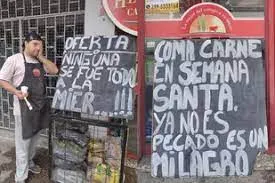 OFERTA
NINGUNA
SE FUE TODO
A LA
MIER...!!!
COMA CARNE
EN SEMANA
SANTA.
YA NO ES
PECADO ES UN
MILAGRO